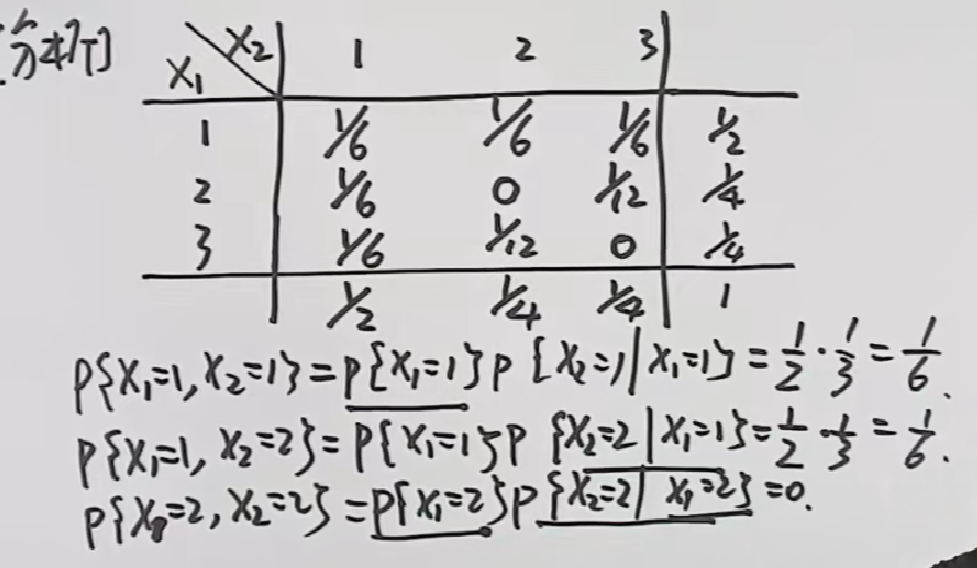 [分析]
X₁ \ X₂ | 1 2 3 |
1 | 1/6 1/6 1/6 | 1/2
2 | 1/6 0 1/12 | 1/4
3 | 1/6 1/12 0 | 1/4
| 1/2 1/4 1/4 | 1
P{X₁=1, X₂=1} = P{X₁=1} P{X₂=1|X₁=1} = 1/2 · 1/3 = 1/6.
P{X₁=1, X₂=2} = P{X₁=1} P{X₂=2|X₁=1} = 1/2 · 1/3 = 1/6.
P{X₁=2, X₂=2} = P{X₁=2} P{X₂=2|X₁=2} = 0.